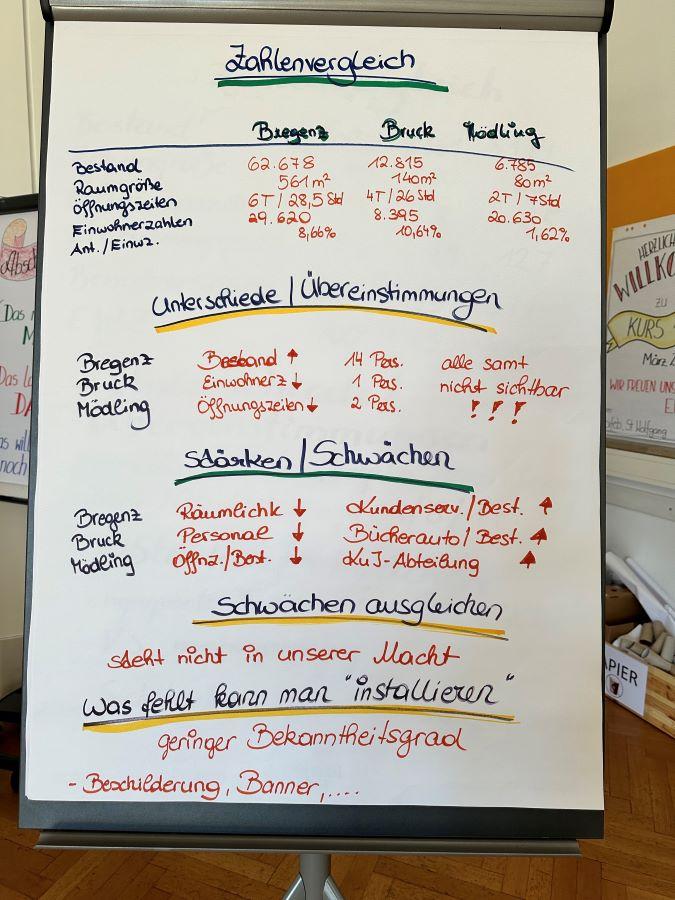 Zahlenvergleich
Bregenz Bruck Mödling
Bestand 62.678 12.815 6.785
Raumgröße 561 m² 140 m² 80 m²
Öffnungszeiten 6T / 28,5 Std 4T / 26 Std 2T / 7 Std
Einwohnerzahlen 29.620 8.395 20.630
Ant. / Einwz. 8,66% 10,64% 1,62%
Unterschiede / Übereinstimmungen
Bregenz Bestand ↑ 14 Pers. alle samt
Bruck Einwohnerz ↓ 1 Pers. nicht sichtbar
Mödling Öffnungszeiten ↓ 2 Pers. ! ! !
Stärken / Schwächen
Bregenz Räumlichk ↓ Kundenserv. / Best. ↑
Bruck Personal ↓ Bücherauto / Best. ↑
Mödling Öffnz. / Best. ↓ KuJ-Abteilung ↑
Schwächen ausgleichen
steht nicht in unserer Macht
Was fehlt kann man "installieren"
geringer Bekanntheitsgrad
- Beschilderung, Banner, ....
Das
Das
noch
HERZLICH
WILLKO
ZU
KURS
März
WIR FREUEN UNS
St. Wolfgang
APIER